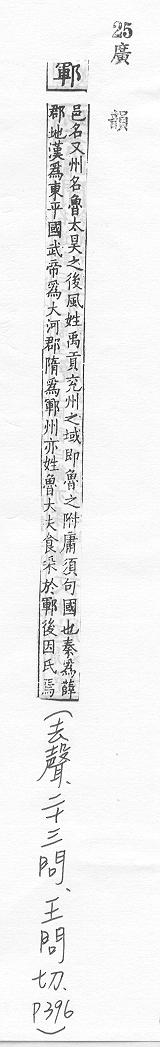 25廣韻
鄆
邑名又州名魯太昊之後風姓禹貢兖州之域即魯之附庸須句國也秦爲薛
郡地漢爲東平國武帝爲大河郡隋爲鄆州亦姓魯大夫食采於鄆後因氏焉
(去聲、二十三問、王問切、P396)